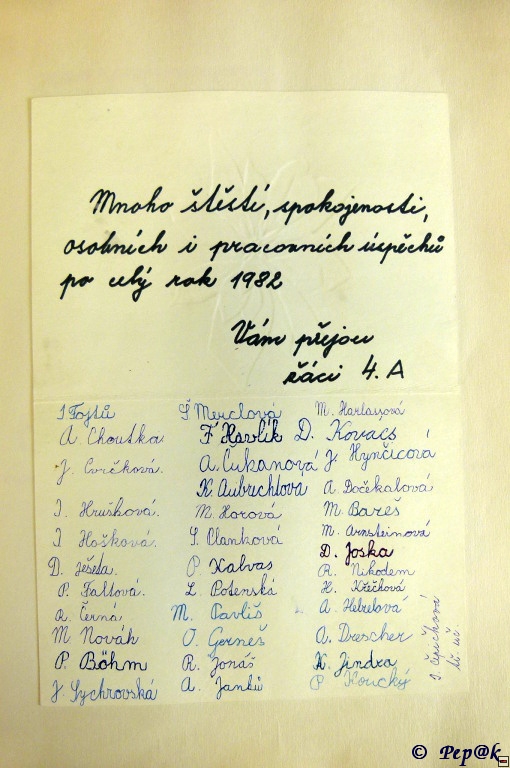 Mnoho štěstí, spokojenosti,
osobních i pracovních úspěchů
po celý rok 1982
Vám přejou
žáci 4. A
J Fojtů Š Merclová M. Harlasová
A. Choutka F. Havlík D. Kovács
J. Cvrčková. A. Čukanová J. Hynčicová
K Aubrechtová A. Dočekalová
I. Hrušková. M. Horová M. Bareš
I Hošková. S. Clanková M. Arnsteinová
D. Ješeta. P. Kalvas D. Joska
P. Faltová. L. Potenská R. Nikodem
H. Křečhová
A. Černá M. Pavliš A. Hebelová
M. Novák O. Gerneš A. Drescher
P. Böhm R. Jonáš K. Jindra
J. Sychrovská A. Janků P Koucký
tř. uč
© Pep@k